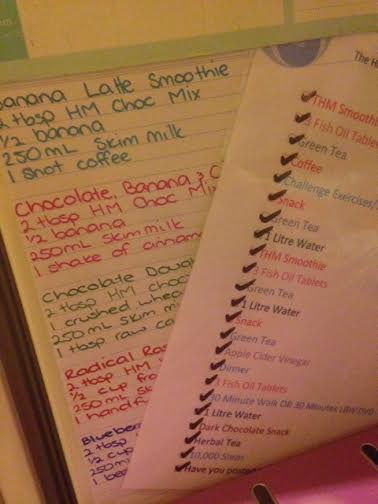 Banana Latte Smoothie
2 tbsp HM Choc Mix
1/2 banana
250mL skim milk
1 shot coffee
Chocolate, Banana &
2 tbsp HM Choc Mix
1/2 banana
250mL skim milk
1 shake of
Chocolate
2 tbsp HM
1 crushed
250mL skim
1 tbsp raw
Radical
2 tbsp HM
1/2 cup
250mL
1
2 tbsp
1/2 cup
250ml
The
THM Smoothie
3 Fish Oil Tablets
Green Tea
Coffee
Challenge Exercises/
Snack
Green Tea
1 Litre Water
THM Smoothie
3 Fish Oil Tablets
Green Tea
1 Litre Water
Snack
Green Tea
Apple Cider Vinegar
Dinner
3 Fish Oil Tablets
30 Minute Walk OR 30 Minutes
1 Litre Water
Dark Chocolate Snack
Herbal Tea
10,000 Steps
Have you posted